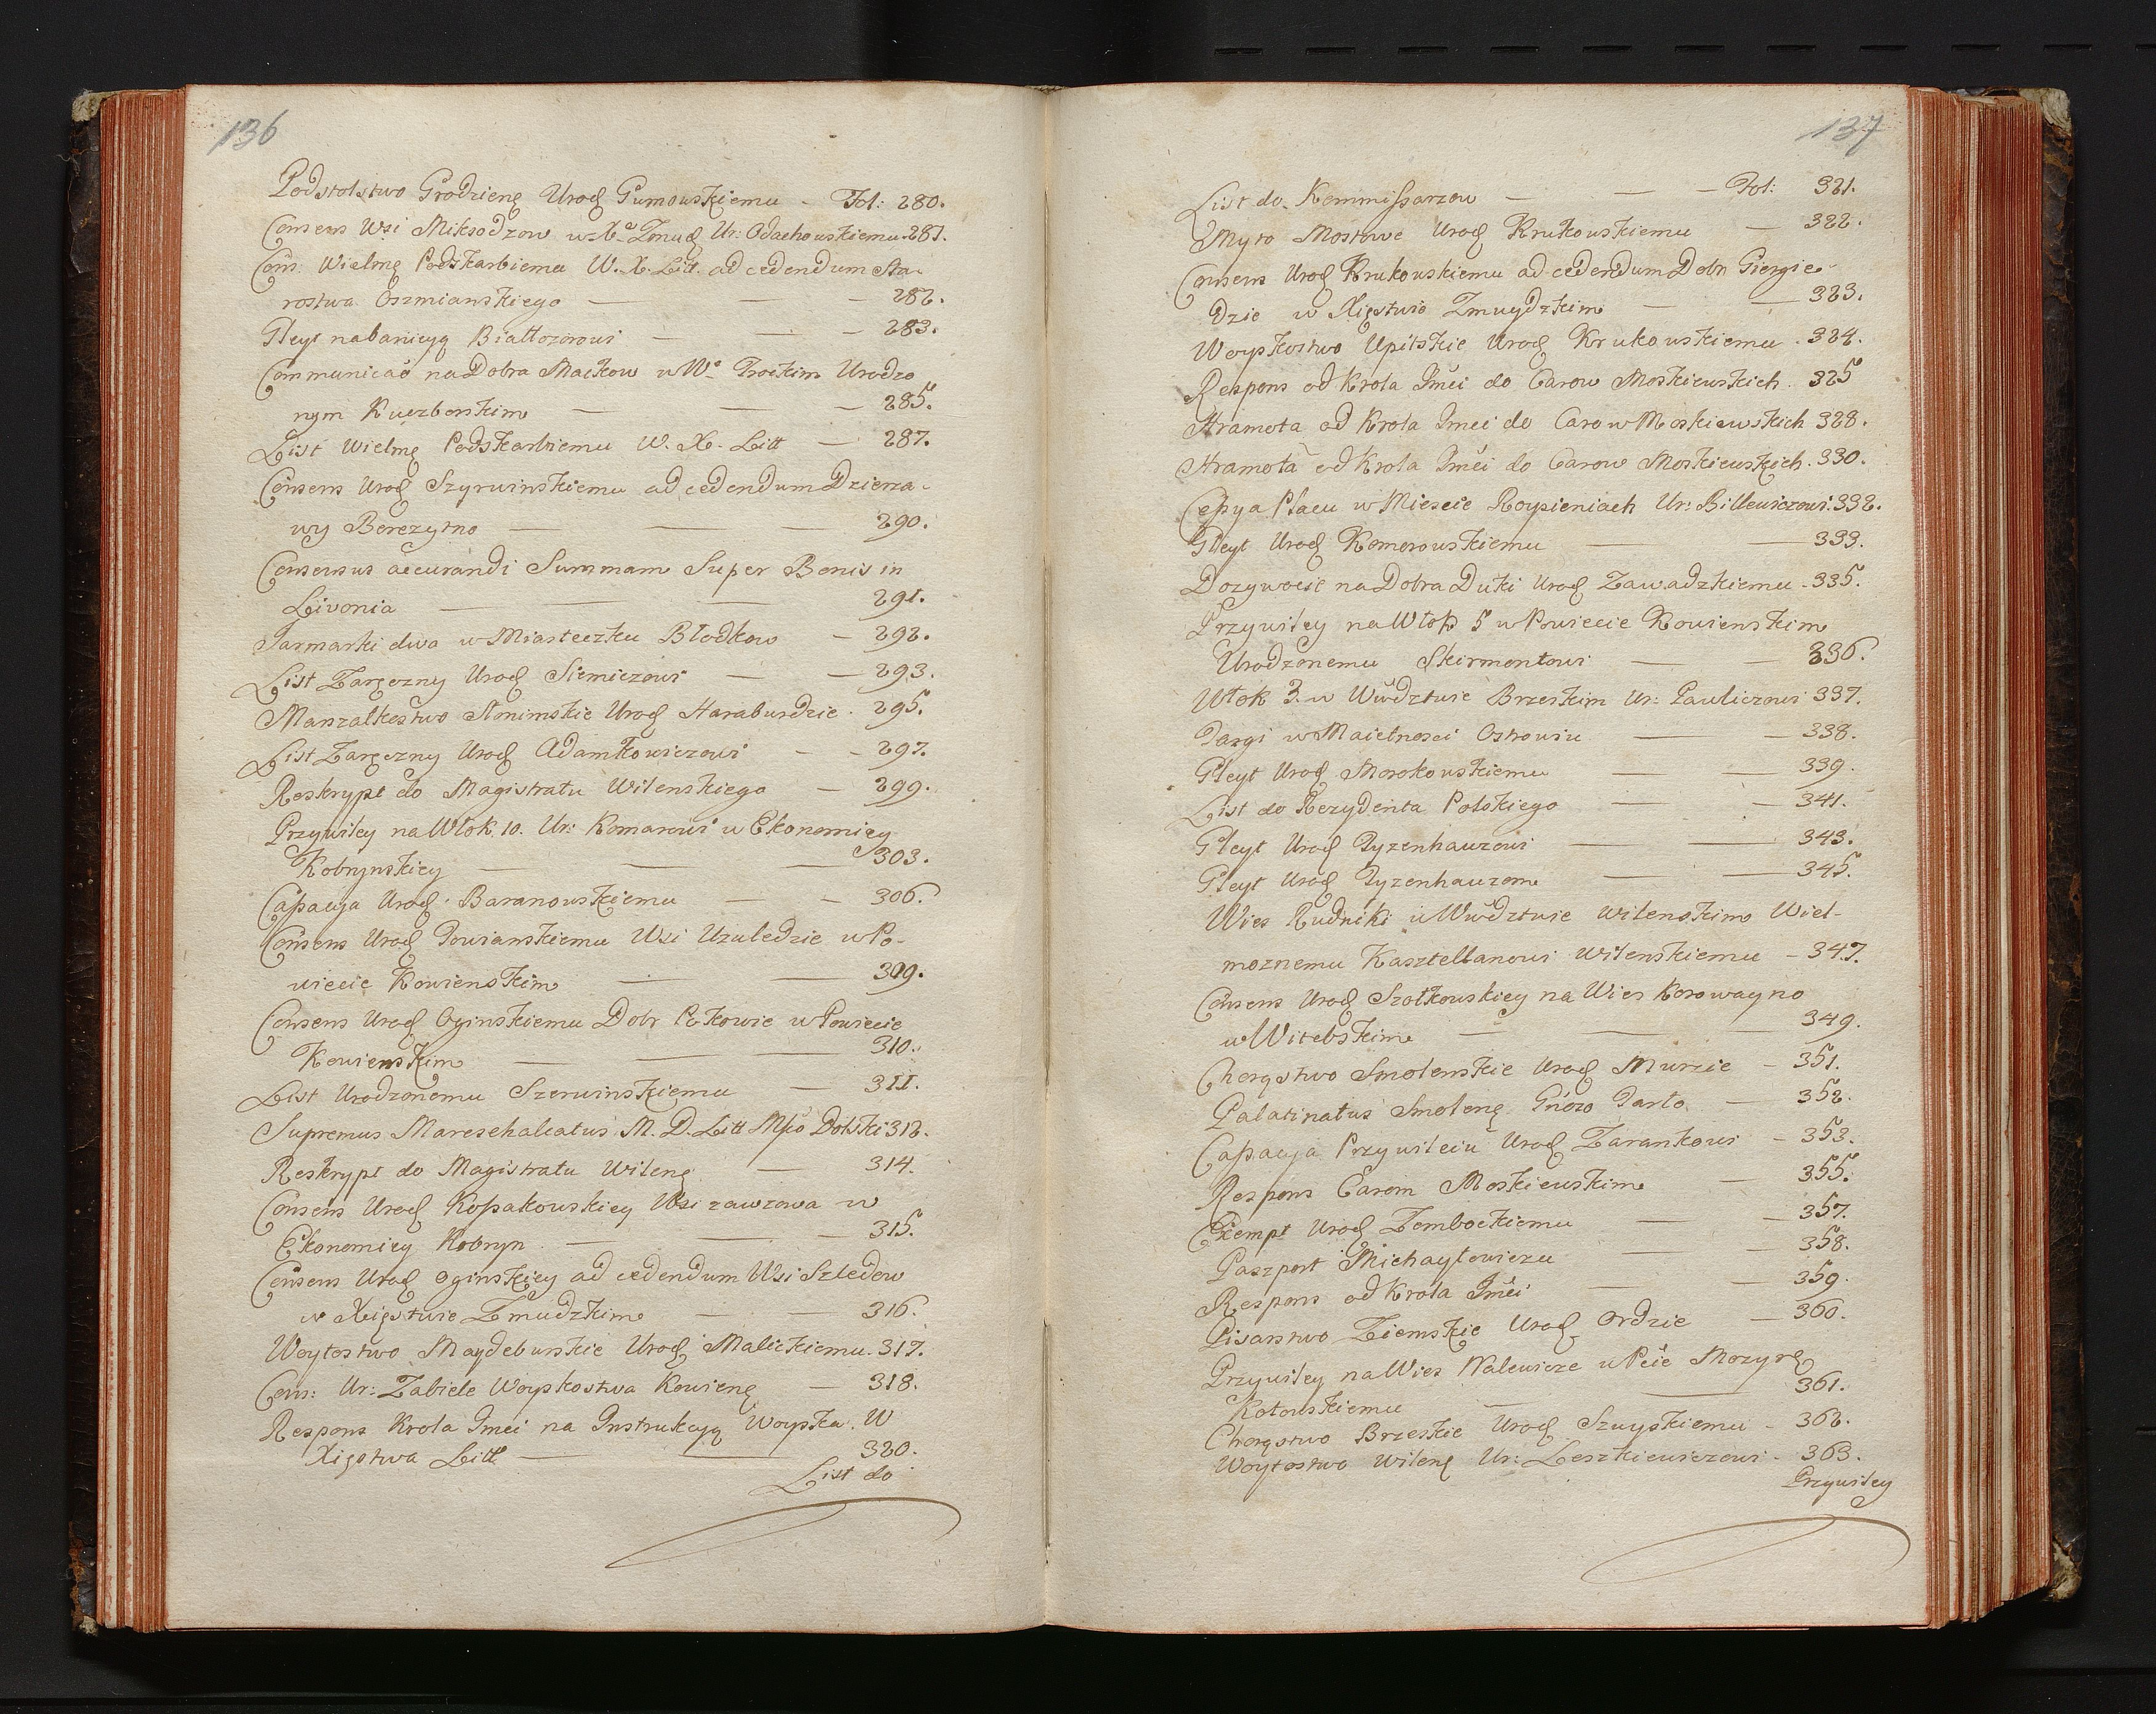 136
Podstolstwo Grodzieńę Urodź Gumowskiemu - Fol: 280.
Consens Wsi Miksodzow w X. Zmudź Ur: Odachowskiemu. 281.
Cons: Wielmę Podskarbiemu W. X. Litt. ad cedendum Sta-
rostwa Oszmianskiego — — — 282.
Gleyt nabanicyą Białłozorowi — — — 283.
Communicaõ na Dobra Mackow w Wie Trockim Urodzo
nym Kuczborskim — — — 285.
List Wielmę Podskarbiemu W. X. Litt — 287.
Consens Urodź Szyrwinskiemu ad cedendum Dzierza-
wy Berezyno — — — 290.
Consensus accurandi Summam Super Bonis in
Livonia — — — 291.
Jarmarki dwa w Miasteczku Błodkow — 292.
List Zaręczny Urodź Siemiczowi — — 293.
Marszalkostwo Słonimskie Urodź Haraburdzie. 295.
List Zaręczny Urodź Adamkowiczowi — — 297.
Reskrypt do Magistratu Wilenskiego — 299.
Przywiley na Włok. 10. Ur: Komarowi w Ekonomiey
Kobrynskiey — — — 303.
Capacya Urodź Baranowskiemu — — 306.
Consens Urodź Jowianskiemu Wsi Uzuledzie w Po-
wiecie Kowienskim — — 309.
Consens Urodź Oginskiemu Dobr Pokowie w Powiecie
Kowienskim — — — 310.
List Urodzonemu Szerwinskiemu — 311.
Supremus Mareschalcatus M. D. Litt Mfco Dolski 312.
Reskrypt do Magistratu Wilenę — 314.
Consens Urodź Kopakowskiey Wsi zawzowa w
Ekonomiey Kobryn. — — — 315.
Consens Urodź Oginskiey ad cedendum Wsi Szledow
w Xięstwie Zmudzkim — — 316.
Woytostwo Maydeburskie Urodź Malickiemu. 317.
Cons: Ur: Zabiele Woyskostwa Kowienę — 318.
Respons Krola Jmci na Instrukcyą Woyska. W
Xięstwa Litt — — 320.
List do
137
List do Kommissarzow — — — Fol: 321.
Myto Mostowe Urodź Krukowskiemu — 322.
Consens Urodź Krukowskiemu ad cedendum Dobr Giergie-
dzie w Xięstwie Zmuydzkim — — 323.
Woyskostwo Upitskie Urodź Krukowskiemu. 324.
Respons od Krola Jmci do Carow Moskiewskich. 325
Hramota od Krola Jmci do Carow Moskiewskich 328.
Hramota od Krola Jmci do Carow Moskiewskich. 330.
Cessya Placu w Miescie Rosieniach Ur: Billewiczowi. 332.
Gleyt Urodź Komorowskiemu — — 333.
Dozywocie na Dobra Duki Urodź Zawadzkiemu - 335.
Przywiley na Włok 5 w Powiecie Kowienskim
Urodzonemu Skirmontowi — — 336.
Włok 3. w Wwdztwie Brzeskim Ur: Pauliczowi 337.
Targi w Maietnosci Ostrowiu — — 338.
Gleyt Urodź Morokowskiemu — — 339.
List do Rezydenta Polskiego — — 341.
Gleyt Urodź Tyzenhauzowi — — 343.
Gleyt Urodź Tyzenhauzom — — 345.
Wies Rudniki w Wwdztwie Wilenskim Wiel-
moznemu Kasztellanowi Wilenskiemu - 347.
Consens Urodź Szolkowskiey na Wies Korowayno
w Witebskim — — 349.
Chorąstwo Smolenskie Urodź Murzie - 351.
Palatinatus Smolenę Gnozo Tarlo. — 352.
Capacya Przywileiu Urodź Zarankowi - 353.
Respons Carom Moskiewskim — 355.
Exempt Urodź Zembockiemu — — 357.
Paszport Michayłowiczu — — 358.
Respons od Krola Jmci — — 359.
Pisarstwo Ziemskie Urodź Ordzie — 360.
Przywiley na Wies Walewicze w Pcie Mozyrę
Kotowskiemu — — 361.
Chorąstwo Brzeskie Urodź Szuyskiemu - 362.
Woytostwo Wilenę Ur: Leszkiewiczowi - 363.
Przywiley